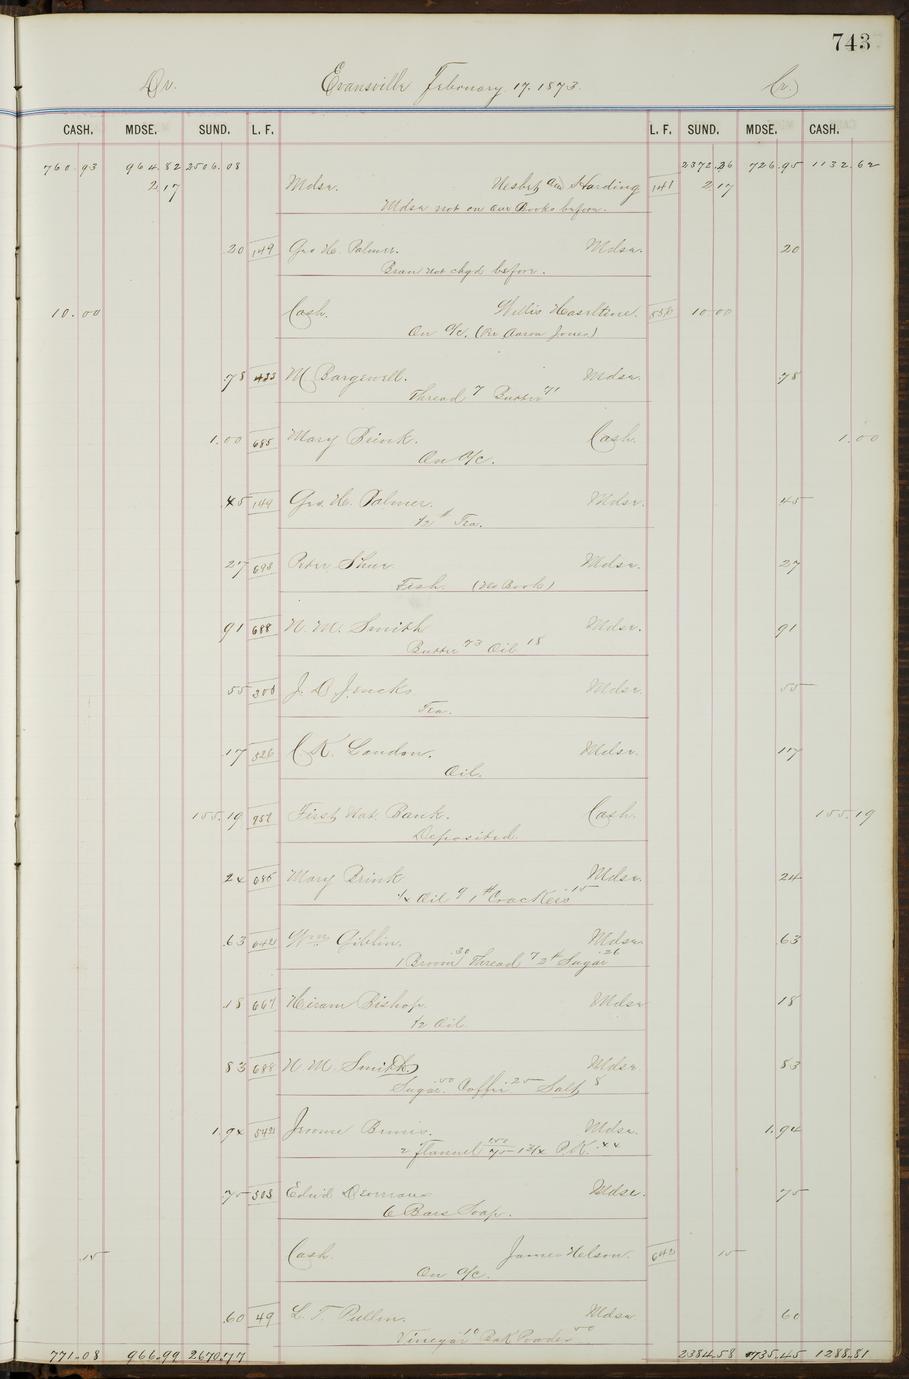 743
Dr. Evansville February 17. 1873. Cr.
CASH. MDSE. SUND. L. F. L. F. SUND. MDSE. CASH.
760.93 964.82 2506.08 2372.26 726.95 1132.62
2.17 Mdse. Nesbit and Harding 141 2.17
Mdse not on our Books before.
20 149 Geo H. Palmer. Mdse. 20
Bran not chgd before.
10.00 Cash. Willis Haseltine. 558 10.00
On a/c. (Per Aaron Jones)
78 433 M Bargewell. Mdse. 78
Thread 7 Butter 71
1.00 685 Mary Brink. Cash. 1.00
On a/c.
45 149 Geo. H. Palmer. Mdse. 45
1/2 # Tea.
27 693 Peter Shur Mdse. 27
Fish. (No Book)
91 688 N. M. Smith Mdse. 91
Butter 73 Oil 18
55 306 J. D Jencks Mdse. 55
Tea.
17 526 C K. Landon. Mdse. 17
Oil.
155.19 751 First Nat. Bank. Cash. 155.19
Deposited.
24 685 Mary Brink Mdse. 24
1/4 Oil 9 1 # Crackers 15
.63 642 Wm Giblin. Mdse. 63
1 Broom 30 Thread 7 2# Sugar 26
.18 667 Hiram Bishop. Mdse 18
1/2 Oil.
83 688 N. M. Smith Mdse. 83
Sugar .50 Coffee 25 Salt 8
1.94 542 Jerome Bemis. Mdse. 1.94
2 Flannel 1.50 P.K. 44
75 503 Edwd Mdse. 75
6 Bars Soap.
.15 Cash. James Nelson. 642 15
On a/c.
.60 49 L. T. Pullen. Mdse 60
Vinegar 10 Bak Powder 50
771.08 966.99 2670.77 2384.58 735.45 1288.81